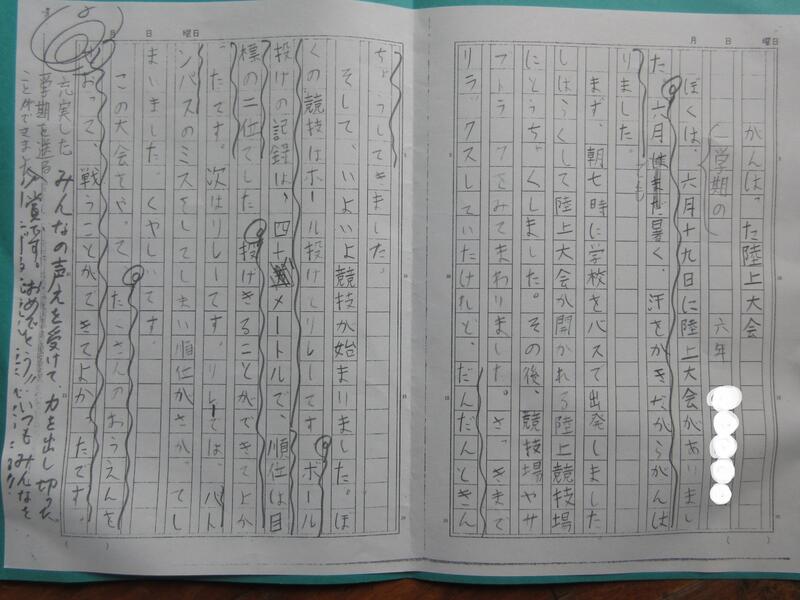 月 日 曜日
がんばった陸上大会
(一学期の
六年
ぼくは、六月十九日に陸上大会がありまし
た。六月はとても暑く、汗をかきながらがんば
りました。
まず、朝七時に学校をバスで出発しました
しばらくして陸上大会が開かれる陸上競技場
にとうちゃくしました。その後、競技場やサ
ブトラックをみてまわりました。さっきまで
リラックスしていたけれど、だんだんときん
ちょうしてきました。
そして、いよいよ競技が始まりました。ぼ
くの競技はボール投げとリレーです。ボール
投げの記録は、四十メートルで、順位は目
標の二位でした。投げきることができてよか
ったです。次はリレーです。リレーでは、バト
ンパスのミスをしてしまい順位がさがってし
まいました。くやしいです。
この大会をやって、たくさんのおうえんを
おって、戦うことができてよかったです。
月 日 曜日
みんなの声えを受けて、力を出し切った
充実した
学期を送る
ことができました
賞です。おめでとう!!いつもみんなを